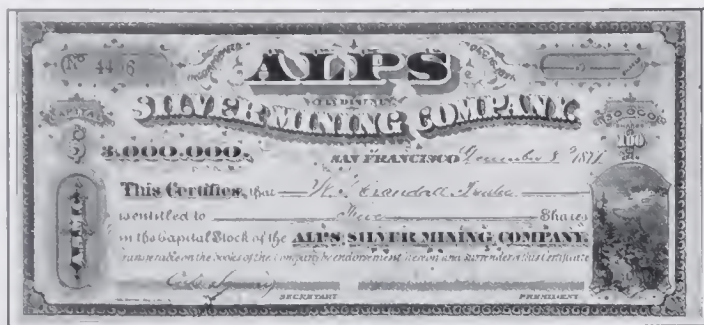 No
ALPS
SILVER MINING COMPANY.
CAPITAL
$3.000.000.
30.000
SHARES
100
SAN FRANCISCO December 1871
This Certifies, that W. Crandall Trustee
is entitled to Five Shares
in the Capital Stock of the ALPS SILVER MINING COMPANY,
Transferable on the Books of the Company by endorsement hereon and surrender of this Certificate
ALPS
SECRETARY
PRESIDENT